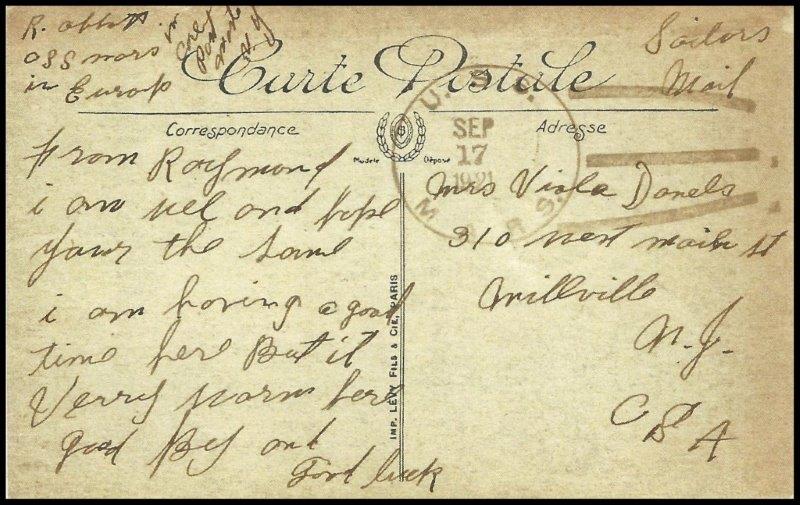 R. abbott
OSS mars
in Europ
in
care
Post
N Y
Sailors
Mail
Carte Postale
Correspondance
Adresse
Modèle
Déposé
U.S.
SEP
17
1921
M RS.
From Raymond
i am wel and hope
your the same
i am having a good
time here But it
Verry warm here
good By and
Good luck
Mrs Viola Danels
310 west main st
Millville
N.J.
USA
IMP. LEVY FILS & CIE, PARIS